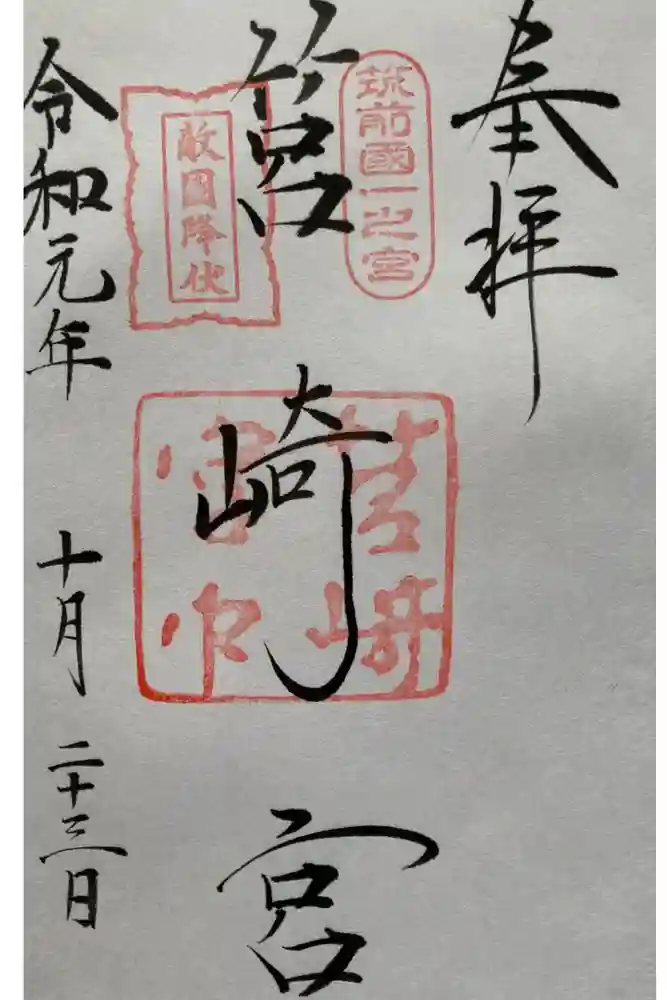 奉拝
筑前國一之宮
筥崎宮
敵国降伏
令和元年 十月 二十三日